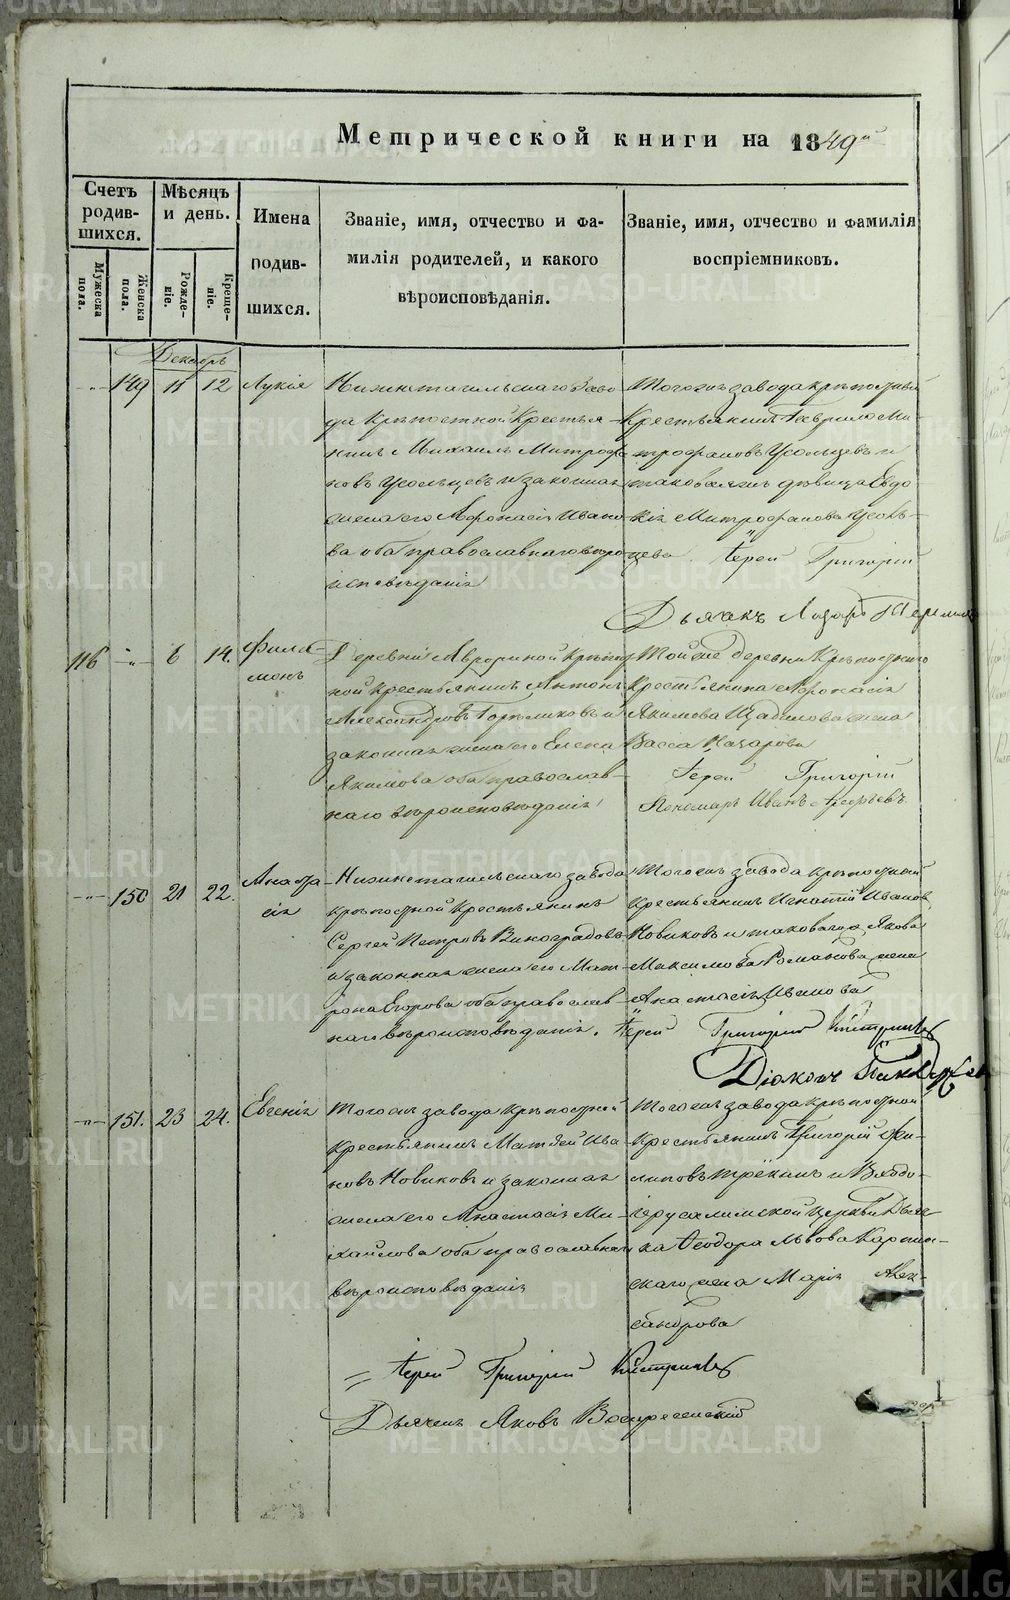 Метрической книги на 1849й
Счетъ родив-шихся.
Мѣсяцъ и день.
Имена родив-шихся.
Званіе, имя, отчество и фа-
милія родителей, и какого
вѣроисповѣданія.
Званіе, имя, отчество и фамилія
воспріемниковъ.
Мужеска пола.
Женска пола.
Рожде-ніе.
Креще-ніе.
Декабрь
149 11 12 Лукія
Нижнетагильскаго заво
да крѣпостной крестья-
нинъ Михаилъ Митрофа
новъ Усольцевъ и законная
жена его Афонасія Ивано
ва оба православнаго вѣро
исповѣданія
Тогожъ завода крѣпостный
крестьянинъ Гаврило Ми-
трофановъ Усольцевъ и
таковагожъ дѣвица Евдо
кія Митрофанова Усоль-
цева Іерей Григорій
Дьячекъ Лазарь
116 6 14. Фили-
монъ
Деревни Аврориной крѣпост
ной крестьянинъ Антонъ
Александровъ Горѣлковъ и
законная жена его Елена
Якимова оба православ-
наго вѣроисповѣданія
Той же деревни крѣпостнаго
крестьянина Афонасія
Якимова жена
Васса Назарова
Іерей Григорій
Пономарь Иванъ
150 21 22. Анаста
сія
Нижнетагильскаго завода
крѣпостной крестьянинъ
Сергей Петровъ Виноградовъ
и законная жена его Мат-
рона Егорова оба православ
наго вѣроисповѣданія.
Тогожъ завода крѣпостной
крестьянинъ Игнатій Ивановъ
Новиковъ и таковагожъ Якова
Максимова Романова жена
Анастасія Иванова
Іерей Григорій
Діаконъ
151. 23 24. Евгенія
Тогожъ завода крѣпостной
крестьянинъ Матѳей Ива
новъ Новиковъ и законная
жена его Анастасія Ми-
хайлова оба православнаго
вѣроисповѣданія
Тогожъ завода крѣпостной
крестьянинъ Григорій Фи-
липовъ и Входо-
іерусалимской церкви Дьяч
ка Ѳеодора Львова Карпин-
скаго жена Марія Алек-
сандрова
Іерей Григорій
Дьячекъ Яковъ Воскресенскій
METRIKI.GASO-URAL.RU